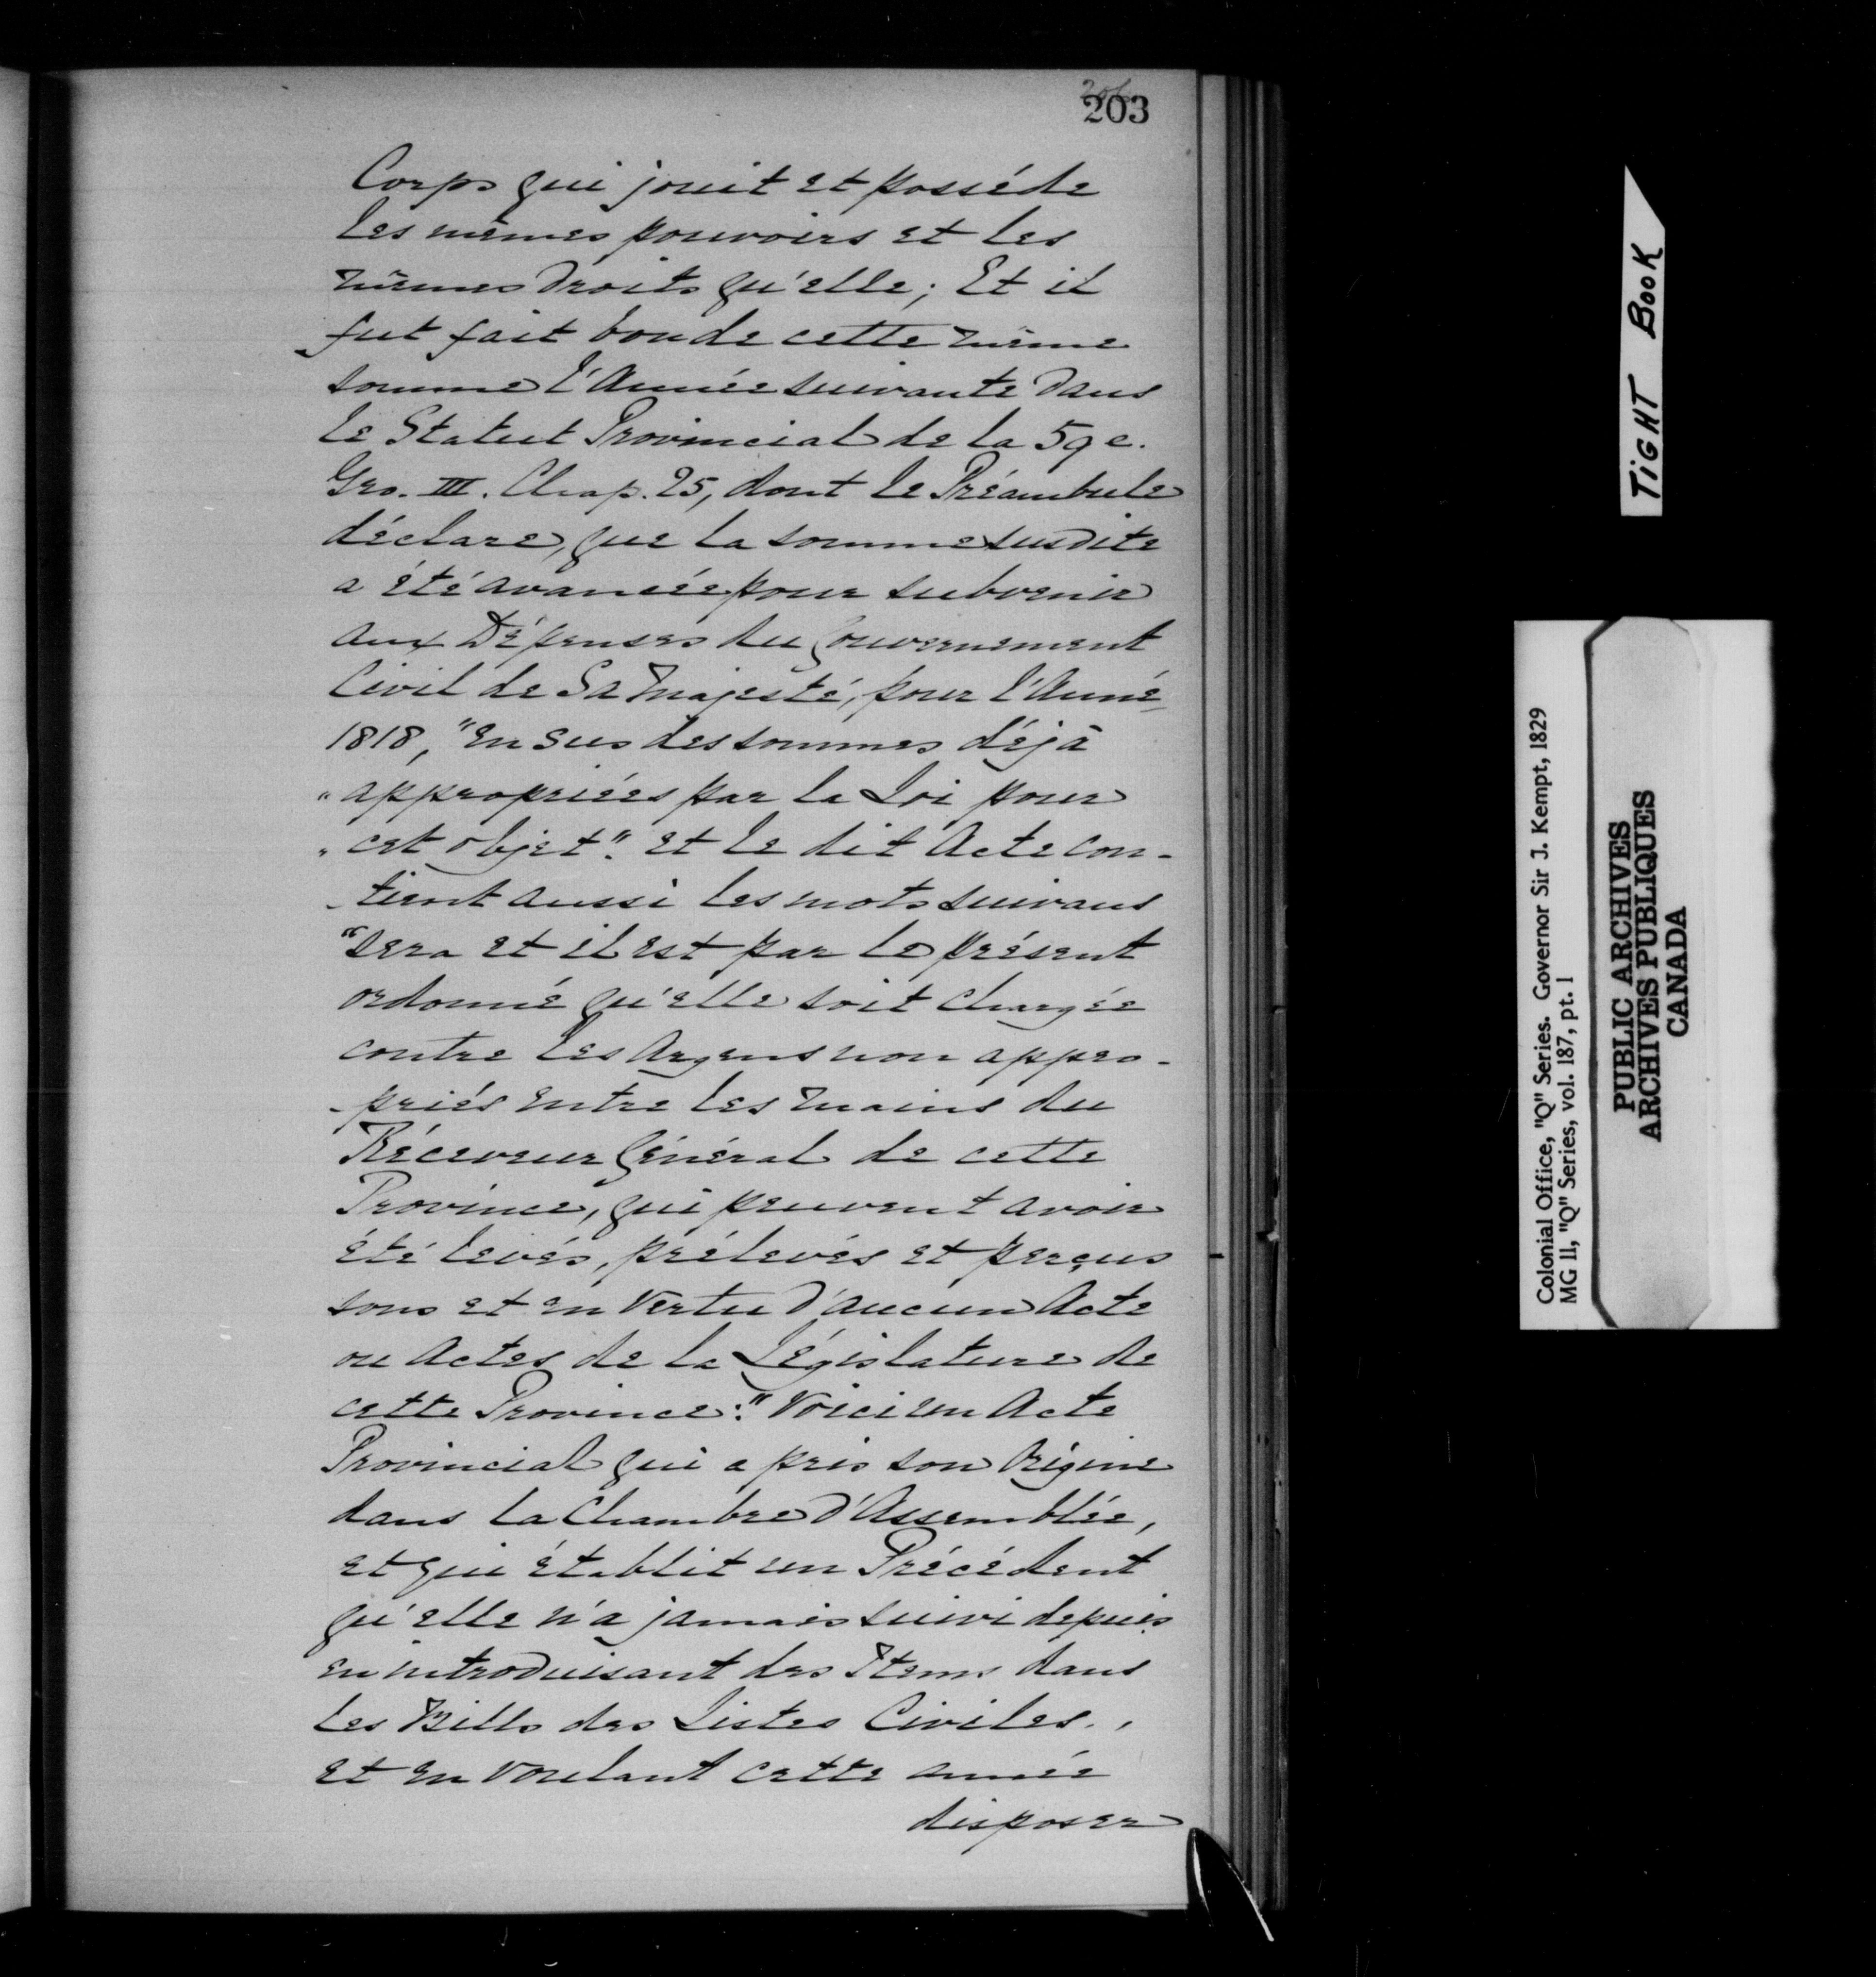 203
Corps qui jouit et posséde
les mêmes pouvoirs et les
mêmes droits qu'elle; Et il
fut fait bon de cette même
somme l'Année suivante dans
le Statut Provincial de la 59e.
Geo. III. Chap. 25, dont le Préambule
déclare, que la somme susdite
a été avancée pour subvenir
aux Dépenses du Gouvernement
Civil de Sa Majesté, pour l'Anné
1818, "en sus des sommes déjà
"appropriées par la Loi pour
"cet objet". et le dit Acte con-
-tient aussi les mots suivans
"sera et il est par le présent
ordonné qu'elle soit chargée
contre les Argens non appro-
-priés entre les mains du
Réceveur Général de cette
Province, qui peuvent avoir
été levés, prélevés et perçus
sous et en vertu d'aucun Acte
ou Actes de la Législature de
cette Province:" Voici un Acte
Provincial qui a pris son Origine
dans la Chambre d'Assemblée,
et qui établit un Précédent
qu'elle n'a jamais suivi depuis
en introduisant des Items dans
les Bills des Listes Civiles.,
et en voulant cette année
disposer
TIGHT BOOK
Colonial Office, "Q" Series. Governor Sir J. Kempt, 1829
MG 11, "Q" Series, vol. 187, pt. 1
PUBLIC ARCHIVES
ARCHIVES PUBLIQUES
CANADA